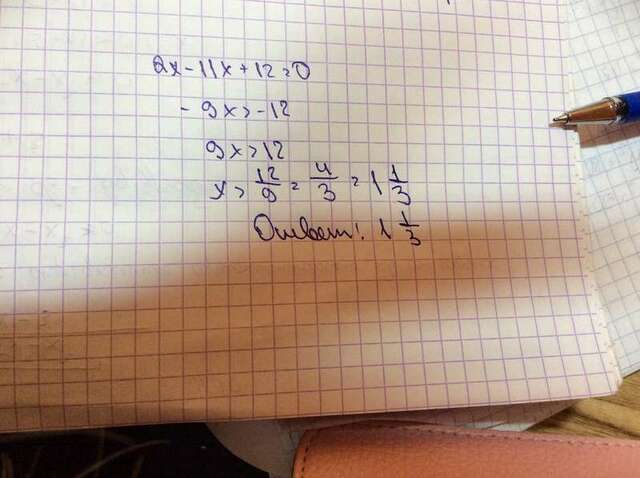 2x - 11x + 12 = 0
- 9x = -12
9x = 12
x = 12/9 = 4/3 = 1 1/3
Ответ: 1 1/3